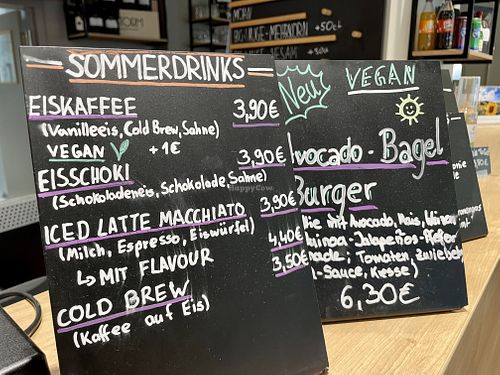 SOMMERDRINKS
EISKAFFEE 3,90€
(Vanilleeis, Cold Brew, Sahne)
VEGAN +1€
EISSCHOKI 3,90€
(Schokoladeneis, Schokolade Sahne)
ICED LATTE MACCHIATO 3,90€
(Milch, Espresso, Eiswürfel)
↳ MIT FLAVOUR 4,40€
COLD BREW 3,50€
(Kaffee auf Eis)
Neu
VEGAN
Avocado - Bagel
Burger
mit Avocado, Mais,
Jalapeños-
Tomaten, Zwiebel
-Sauce, Kresse)
6,30€
+50ct
HappyCow